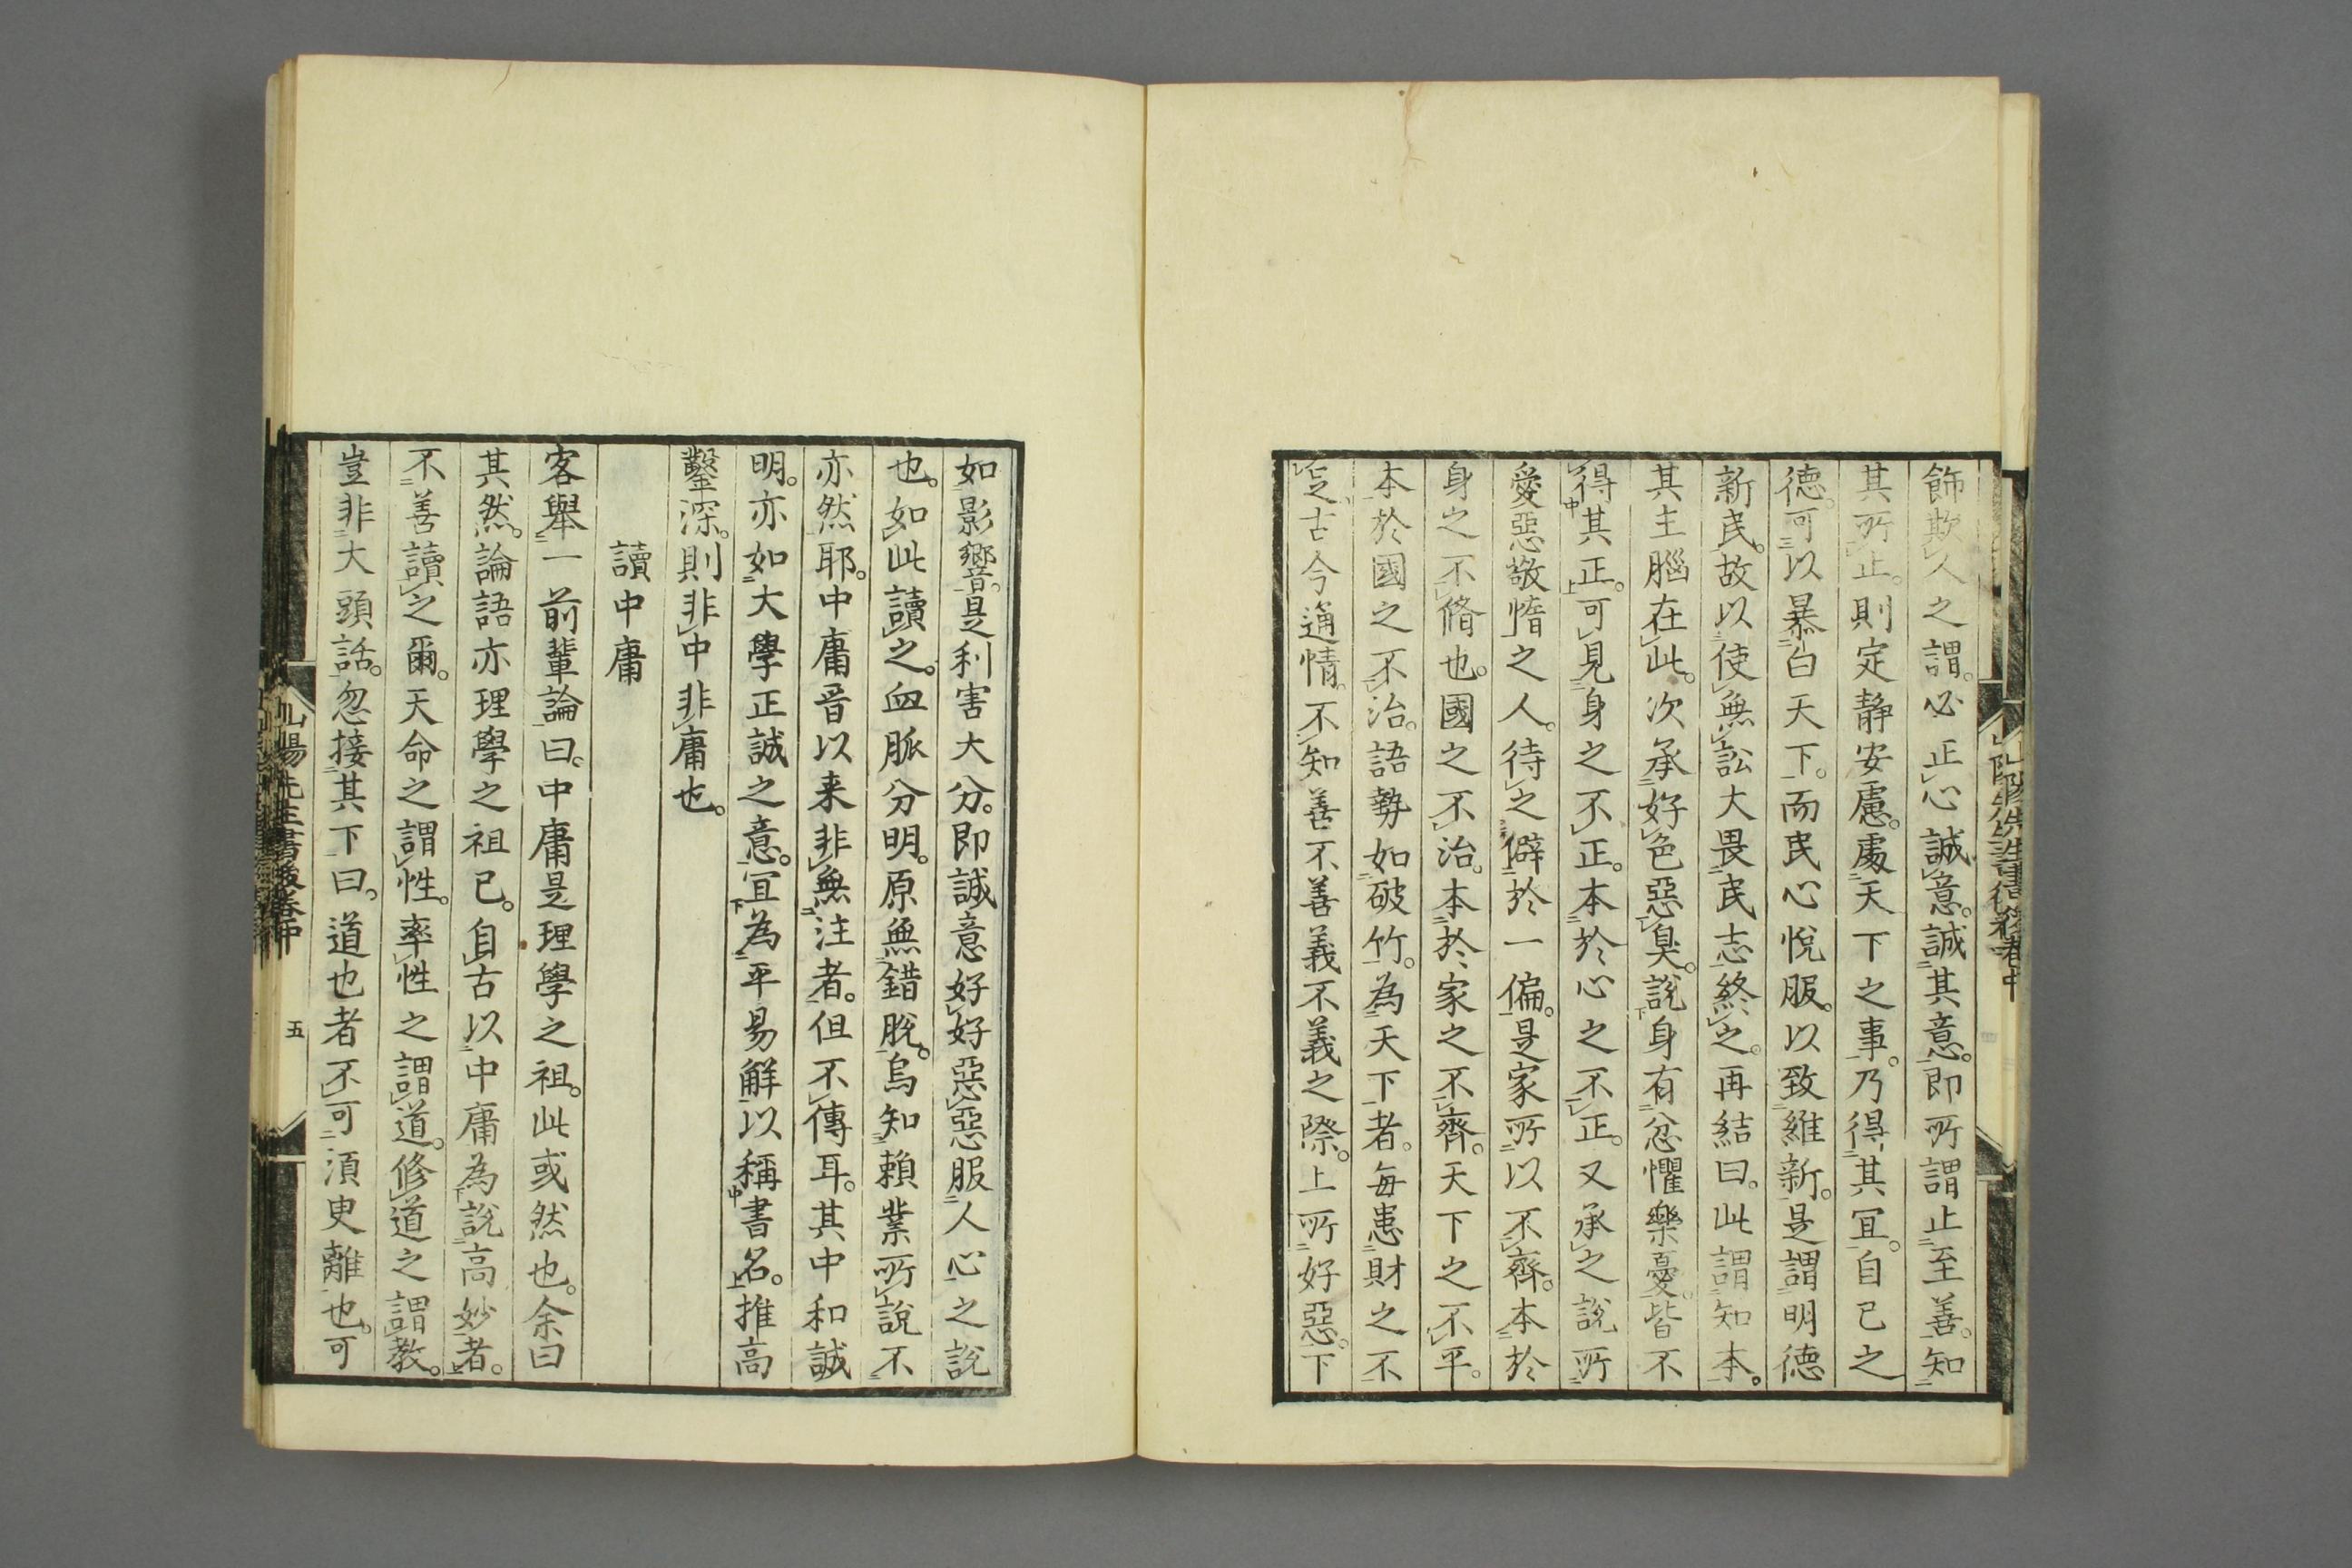 飾欺人之謂。必正心誠意。誠其意。即所謂止至善。知
其所止。則定靜安慮。處天下之事。乃得其宜。自己之
德。可以暴白天下。而民心悅服。以致維新。是謂明德
新民。故以使無訟大畏民志終之。再結曰。此謂知本。
其主腦在此。次承好色惡臭。說身有忿懼樂憂。皆不
得其正。可見身之不正。本於心之不正。又承之說所
愛惡敬惰之人。待之僻於一偏。是家所以不齊。本於
身之不脩也。國之不治。本於家之不齊。天下之不平。
本於國之不治。語勢如破竹。為天下者。每患財之不
足。古今通情。不知善不善義不義之際。上所好惡。下
如影響。是利害大分。即誠意好好惡惡服人心之說
也。如此讀之。血脈分明。原無錯脫。烏知賴業所說不
亦然耶。中庸晉以来非無注者。但不傳耳。其中和誠
明。亦如大學正誠之意。宜為平易解以稱書名。推高
鑿深。則非中非庸也。
讀中庸
客舉一前輩論曰。中庸是理學之祖。此或然也。余曰
其然。論語亦理學之祖已。自古以中庸為說高妙者。
不善讀之爾。天命之謂性。率性之謂道。修道之謂教。
豈非大頭話。忽接其下曰。道也者不可須臾離也。可
山陽先生書後卷中
五